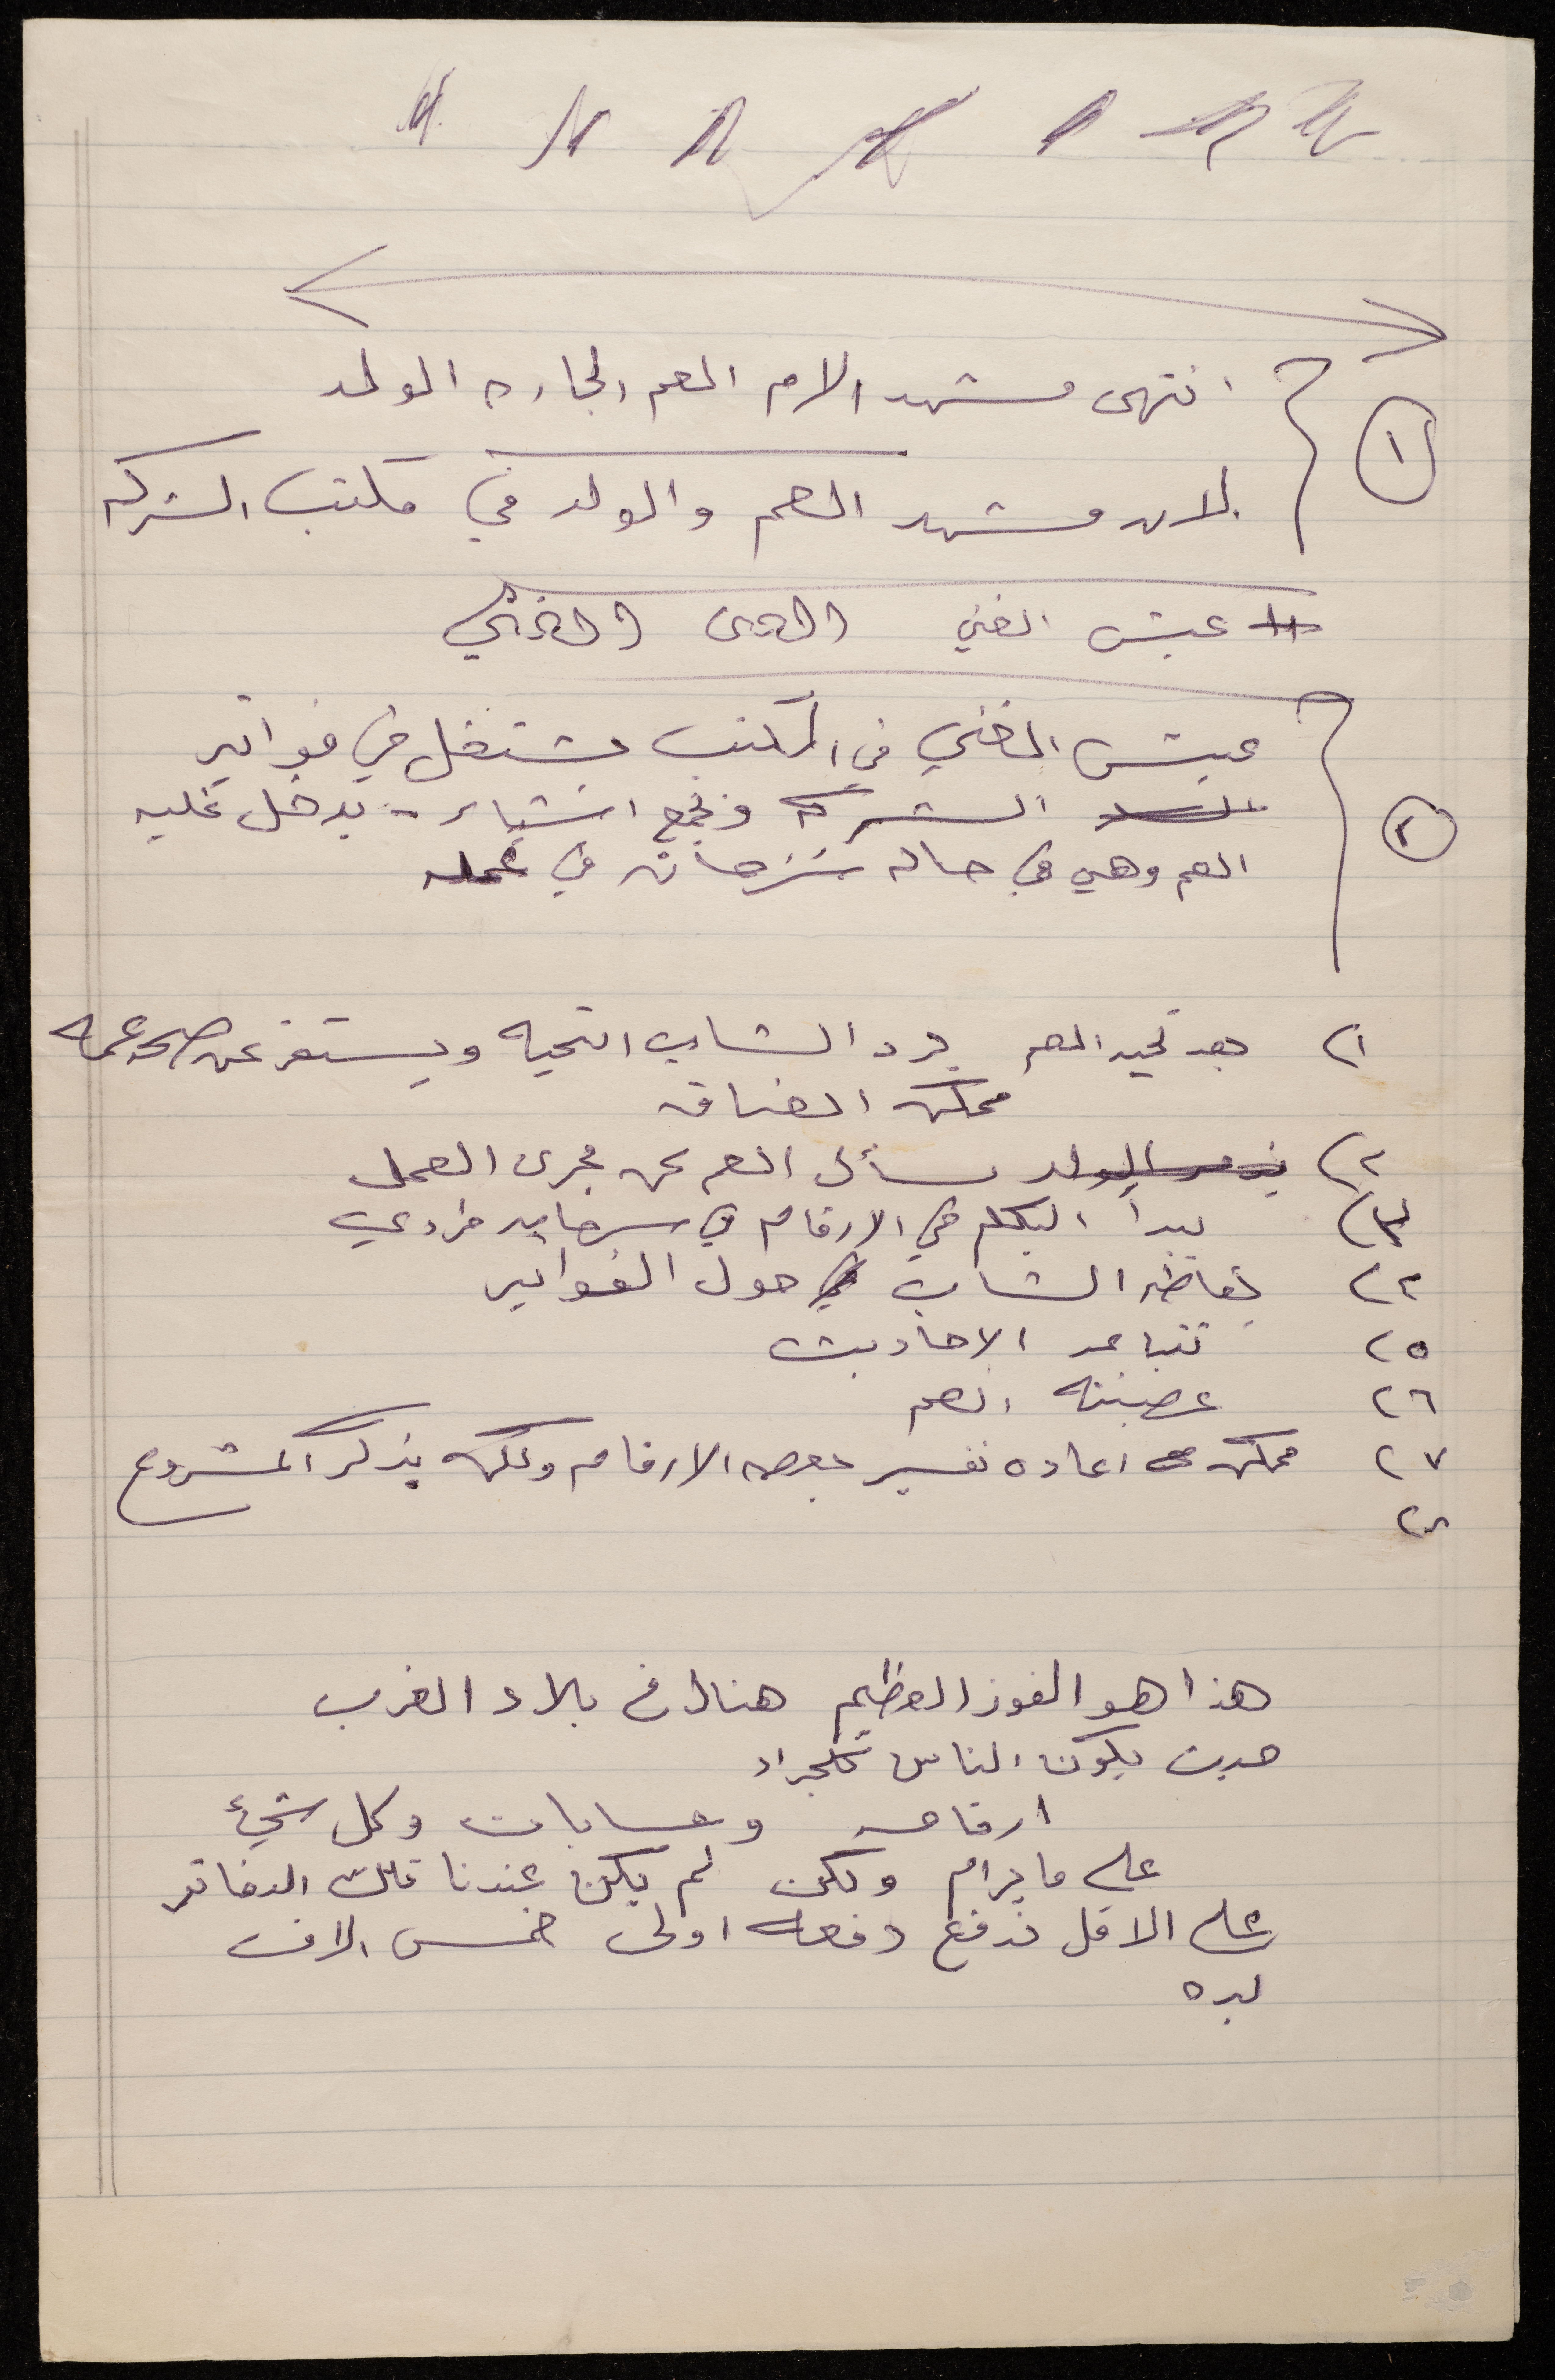 انتهى مشهد الام العم الجاره الولد
١
الان مشهد العم والولد في مكتب الشركه
عبث الفني
٢
في المكتب يشتغل في فواتير
الشركه ويجمع اشياء - يدخل عليه
العم وهي في حاله سرحان في عمله
١) بعد تحيه العم يرد الشاب التحيه ويستفسر عن صحه عمه
ممكن
٢) يسأل العم عن مجرى العمل
٣) يبدأ التكلم في الارقام في سرحان فردي
٤) يقاطع الشاب حول الفواتير
٥) تتباعد الاحاديث
٦) عصبيته العم
٧) ممكن اعاده تفسير بعض الارقام ولكن يذكر المشروع
٨)
هذا هو الفوز العظيم هناك في بلاد الغرب
حيث يكون الناس كالجراد
ارقام وحسابات وكل شيء
على ما يرام ولكن لم يكن عندنا تلك الدفاتر
على الاقل ندفع دفعه اولى خمس الاف
ليره